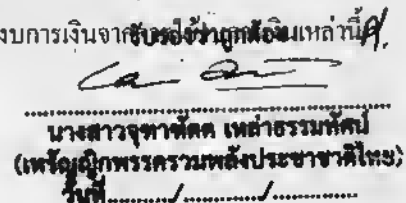 งบการเงินจาก เหล่านี้
รับรองว่าถูกต้อง
นางสาวจุฑาฑัตต เหล่าธรรมทัศน์
(เหรัญญิกพรรครวมพลังประชาชาติไทย)
วันที่........./............/...............